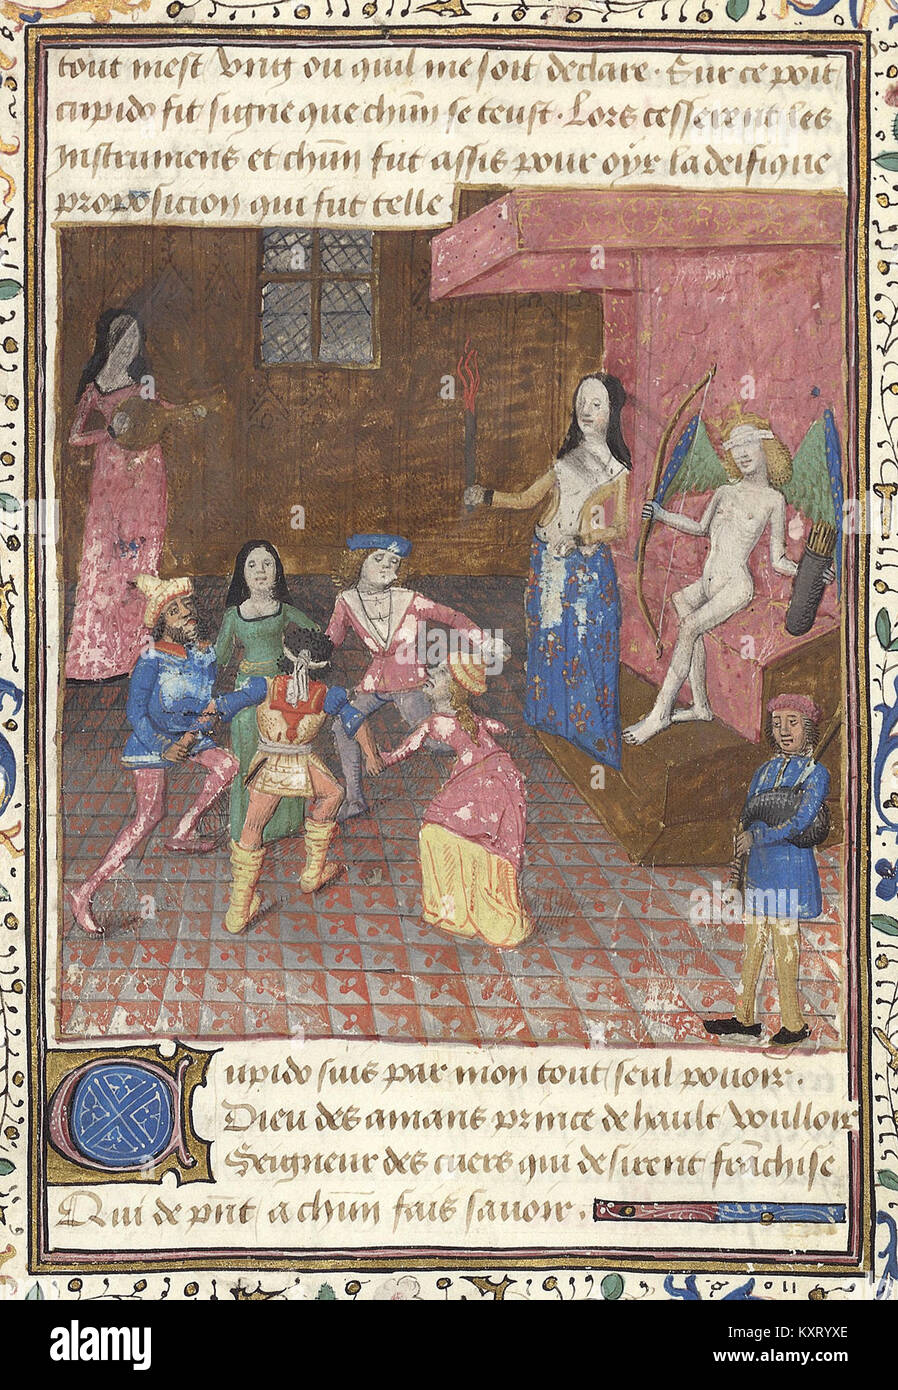 tout mest vng ou quil me soit declare. Sur ce poit
cupido fit signe que chun se teust. Lors cesserent les
Instrumens et chun fut assis pour oyr la deifique
proposicion qui fut telle
Cupido suis par mon tout seul pouoir.
Dieu des amans prince de hault voulloir
Seigneur des cuers qui desirent franchise
Qui de pnt a chun fais sauoir.
alamy
Image ID: KXRYXE
www.alamy.com